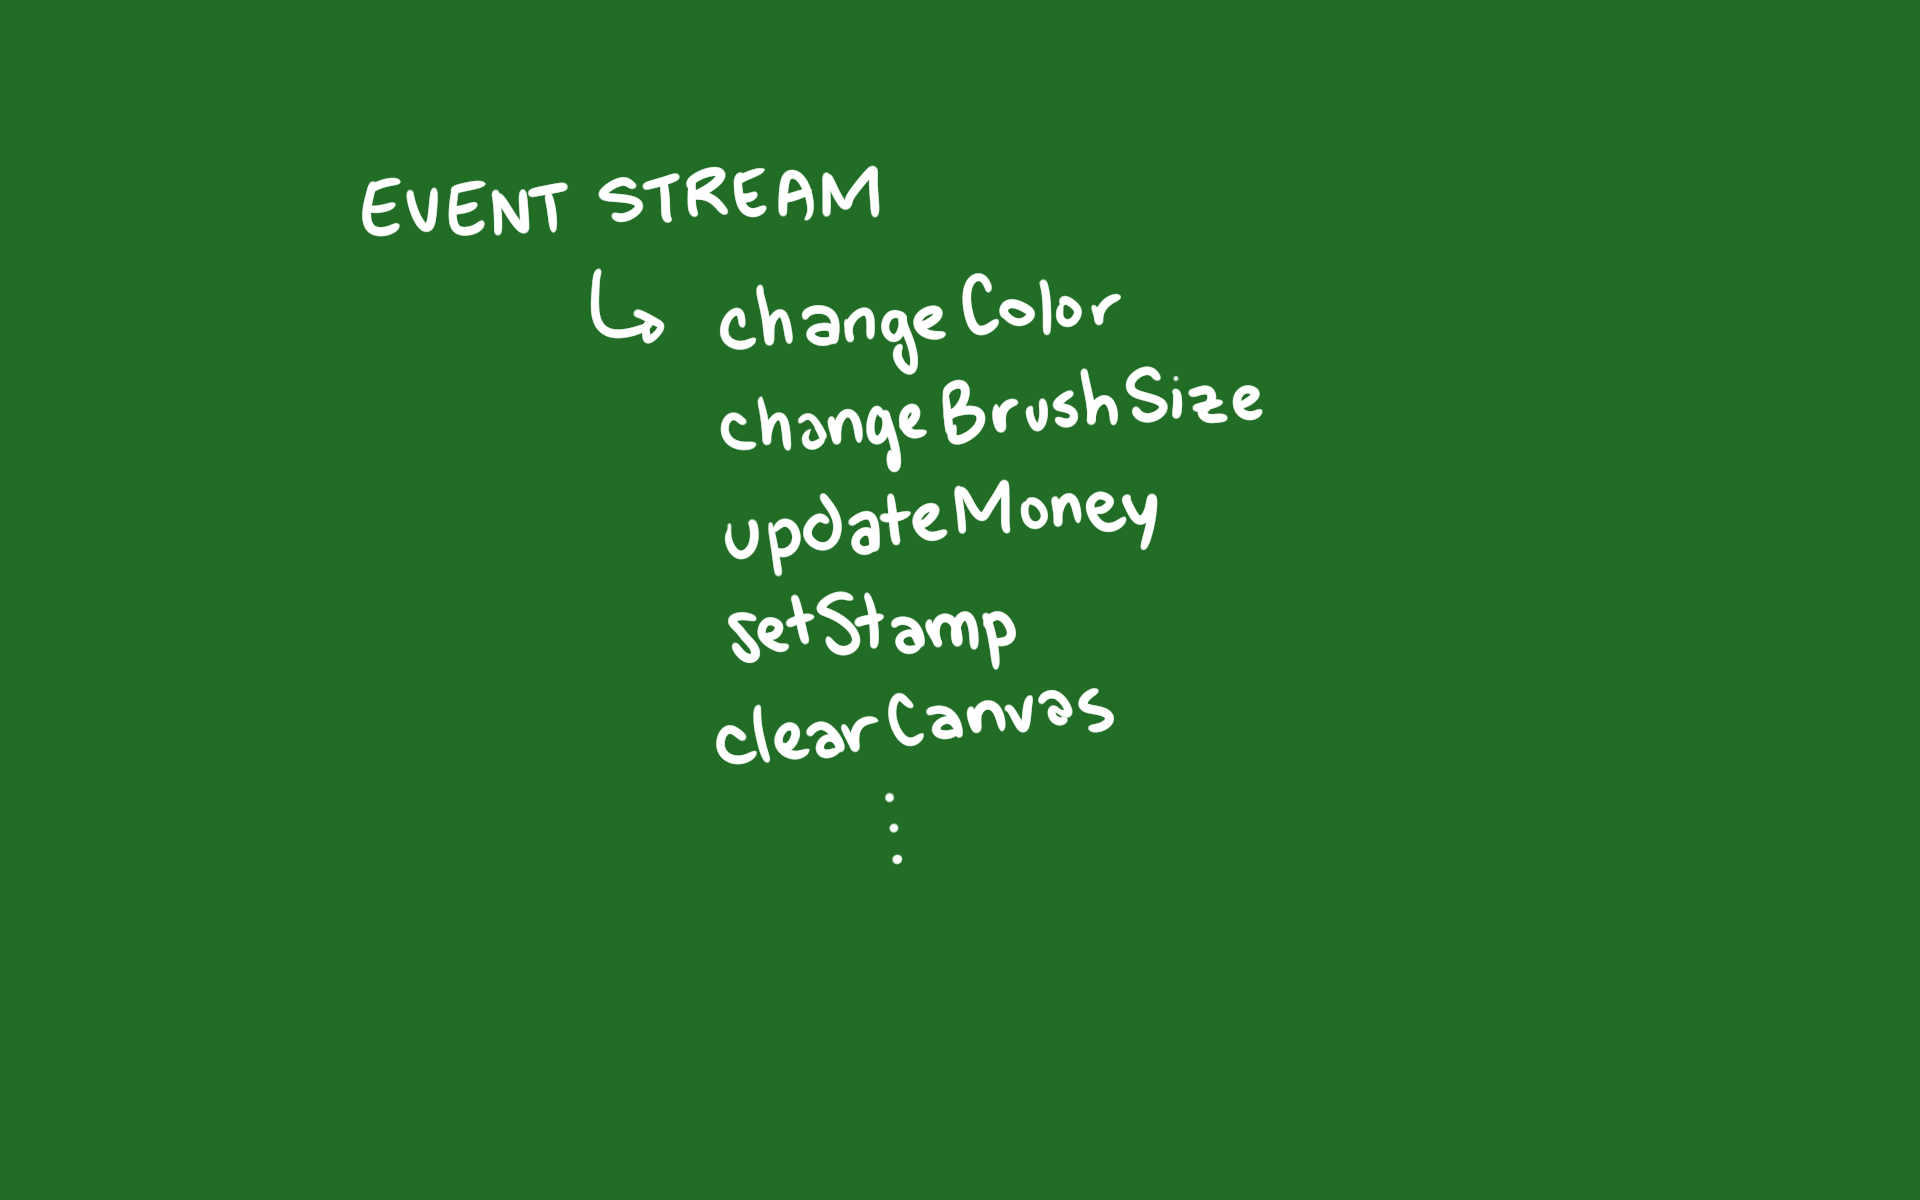 EVENT STREAM
changeColor
changeBrushSize
updateMoney
setStamp
clearCanvas